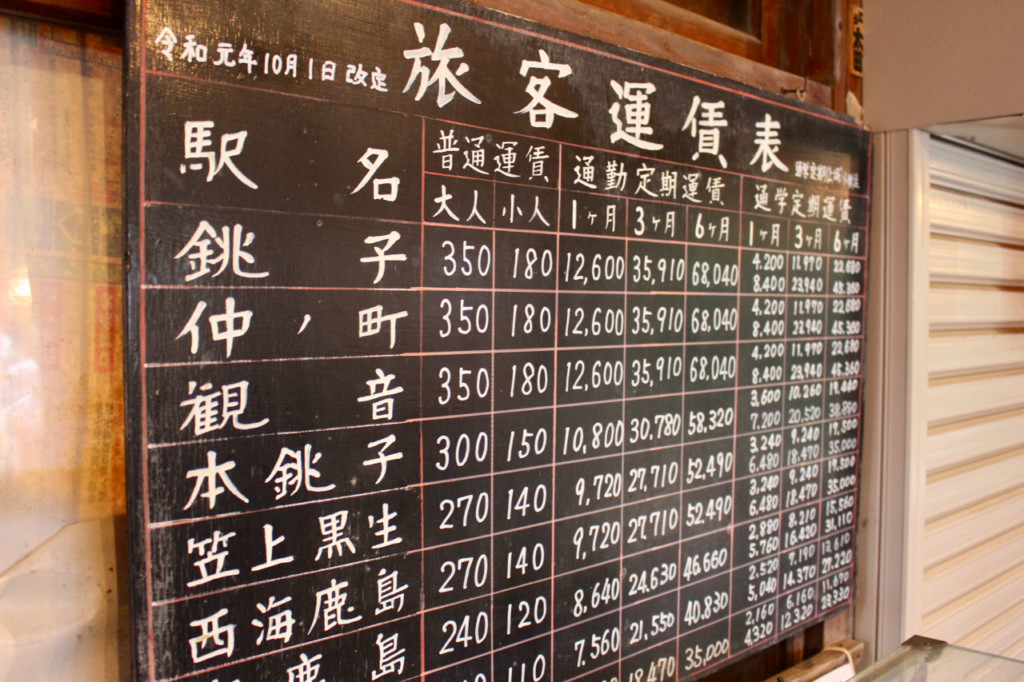 旅客運賃表
令和元年10月1日改定
駅名 普通運賃 通勤定期運賃 通学定期運賃
大人 小人 1ヶ月 3ヶ月 6ヶ月 1ヶ月 3ヶ月 6ヶ月
銚子 350 180 12,600 35,910 68,040 4,200 11,970 22,680
8,400 23,940 45,360
仲ノ町 350 180 12,600 35,910 68,040 4,200 11,970 22,680
8,400 23,940 45,360
観音 350 180 12,600 35,910 68,040 4,200 11,970 22,680
8,400 23,940 45,360
本銚子 300 150 10,800 30,780 58,320 3,600 10,260 19,440
7,200 20,520 38,880
笠上黒生 270 140 9,720 27,710 52,490 3,240 9,240 17,500
6,480 18,470 35,000
西海鹿島 270 140 9,720 27,710 52,490 3,240 9,240 17,500
6,480 18,470 35,000
鹿島 240 120 8,640 24,630 46,660 2,880 8,210 15,560
5,760 16,420 31,110
110 7,560 21,550 40,830 2,520 7,190 13,610
5,040 14,370 27,220
18,470 35,000 2,160 6,160 11,670
4,320 12,320 23,330